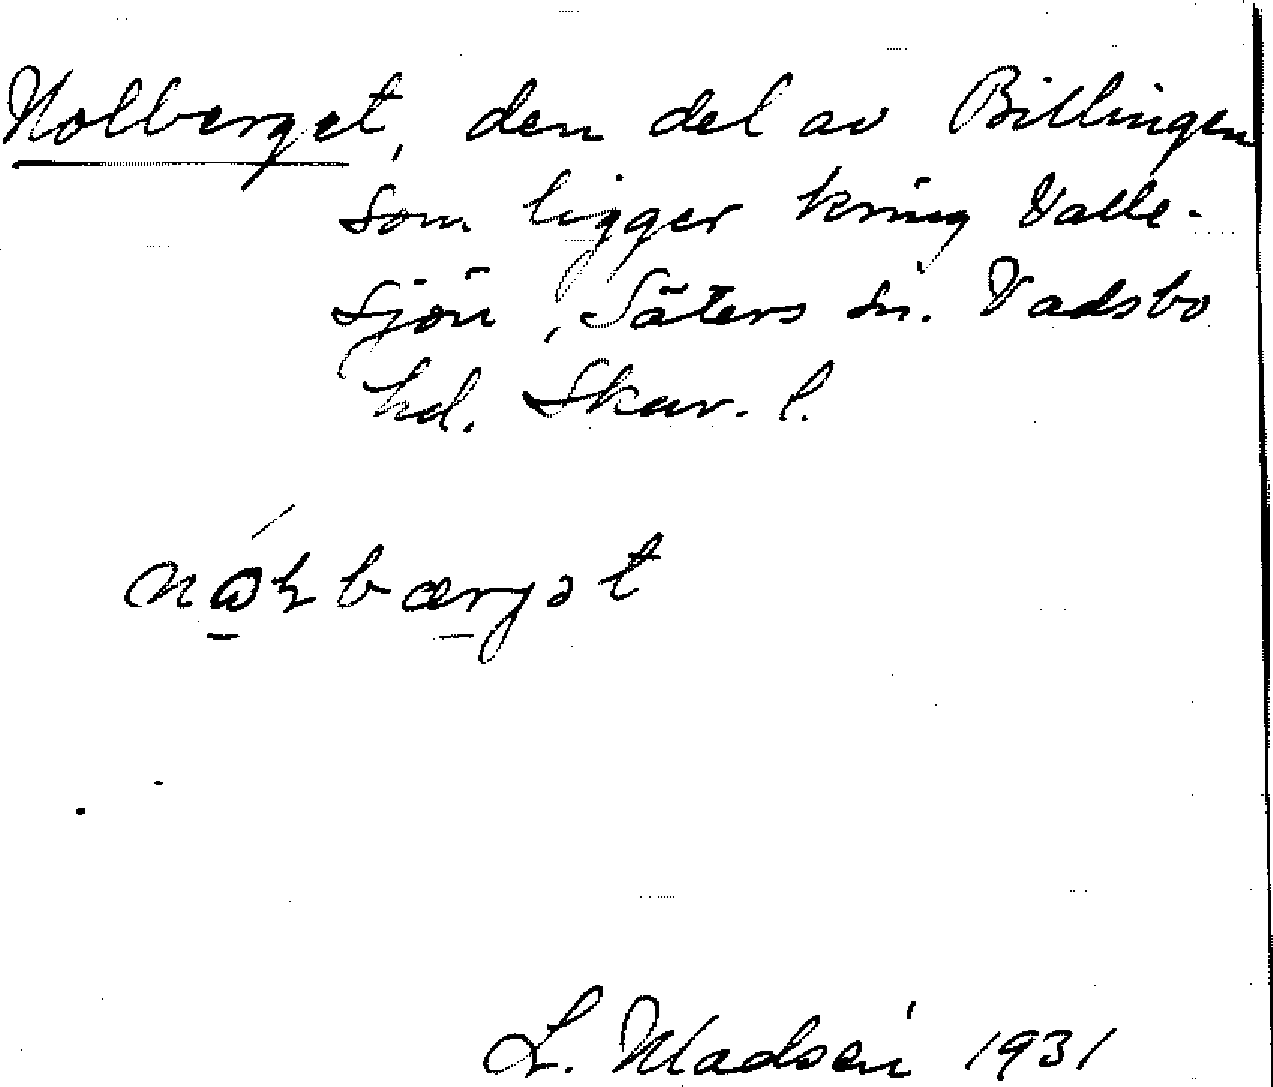 Nolberget, den del av Billingen
som ligger kring Valle-
sjön, Säters sn. Vadsbo
hd. Skar. l.
nɷ́ɽbærjət
L. Madsén 1931